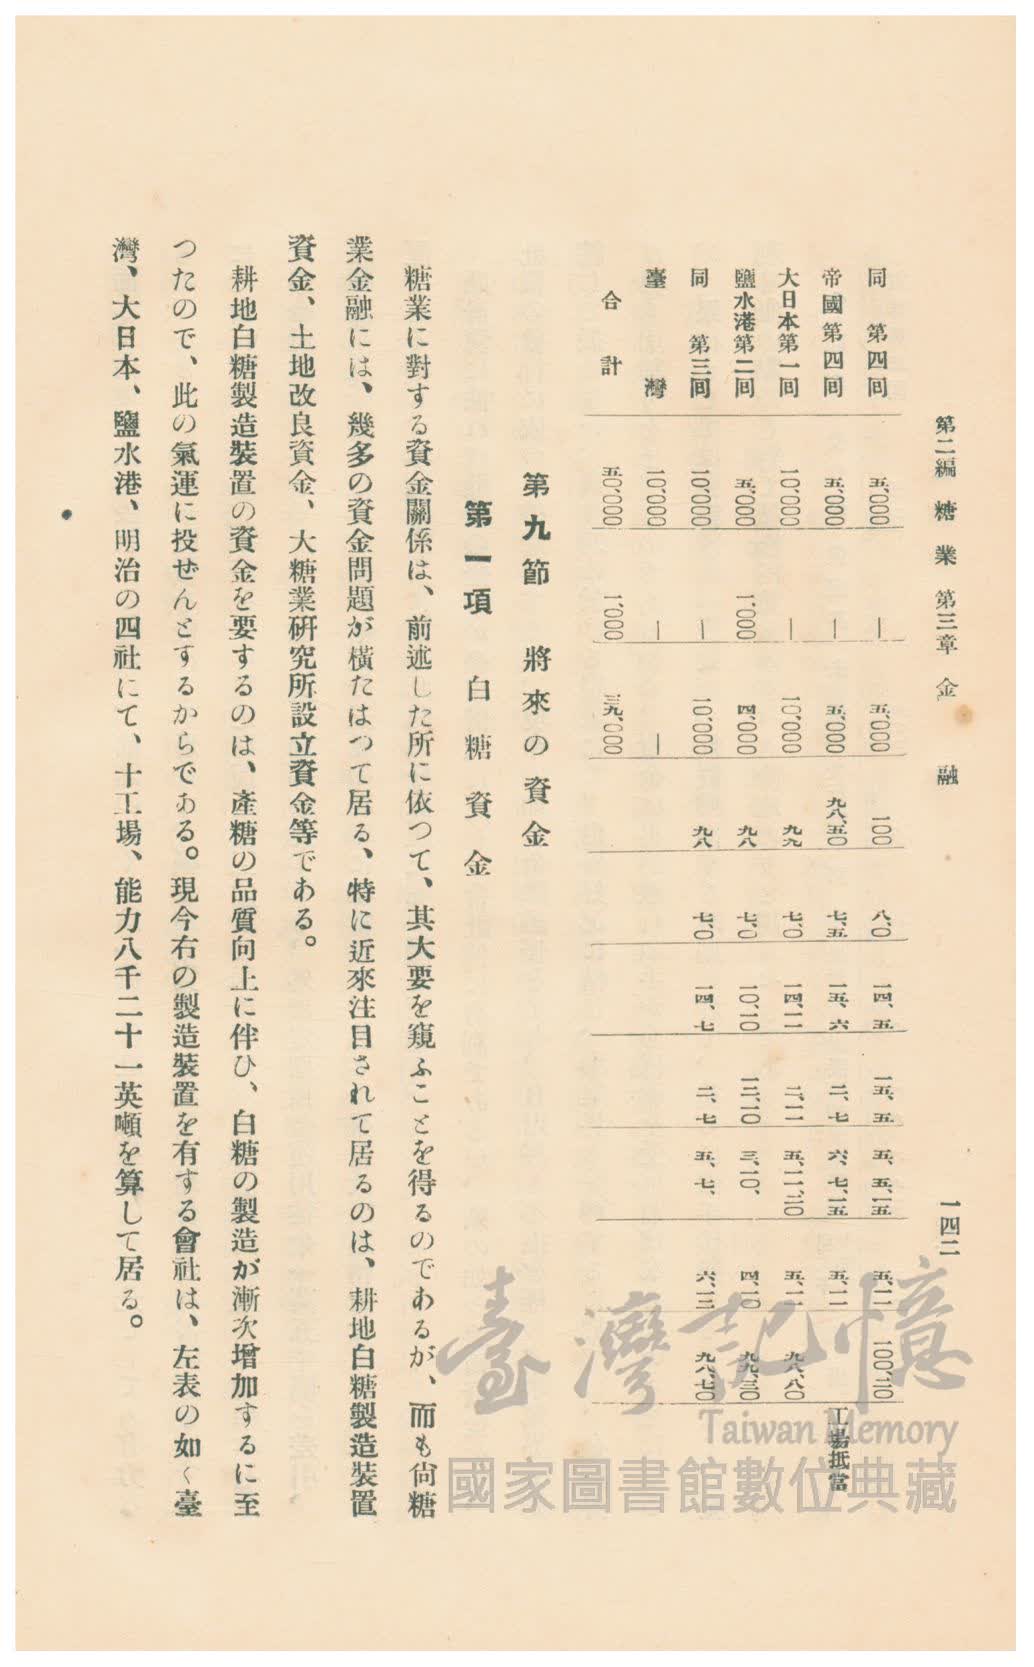 第二編 糖業 第三章 金融 一四二
同 第四囘 五、〇〇〇 ― 五、〇〇〇 一〇〇 八、〇 一四、五 一五、五 五、五、一五 五、一一 一〇〇、二〇
帝國第四囘 五、〇〇〇 ― 五、〇〇〇 九八、五〇 七、五 一五、六 二、七 六、七、一五 五、一一 工場抵當
大日本第一囘 一〇、〇〇〇 ― 一〇、〇〇〇 九九 七、〇 一四、一一 二、一一 五、一一、二〇 五、一一 九八、八〇
鹽水港第二囘 五、〇〇〇 一、〇〇〇 四、〇〇〇 九八 七、〇 一〇、一〇 一三、一〇 三、一〇、 四、一〇 九九、三〇
同 第三囘 一〇、〇〇〇 ― 一〇、〇〇〇 九八 七、〇 一四、七 二、七 五、七、 六、一三 九八、七〇
臺灣 一〇、〇〇〇 ― ―
合計 五〇、〇〇〇 一、〇〇〇 三九、〇〇〇
第九節 將來の資金
第一項 白糖資金
糖業に對する資金關係は、前述した所に依つて、其大要を窺ふことを得るのであるが、而も尙糖
業金融には、幾多の資金問題が橫たはつて居る、特に近來注目されて居るのは、耕地白糖製造裝置
資金、土地改良資金、大糖業硏究所設立資金等である。
耕地白糖製造裝置の資金を要するのは、產糖の品質向上に伴ひ、白糖の製造が漸次增加するに至
つたので、此の氣運に投ぜんとするからである。現今右の製造裝置を有する會社は、左表の如く臺
灣、大日本、鹽水港、明治の四社にて、十工場、能力八千二十一英噸を算して居る。
臺灣記憶
Taiwan Memory
國家圖書館數位典藏